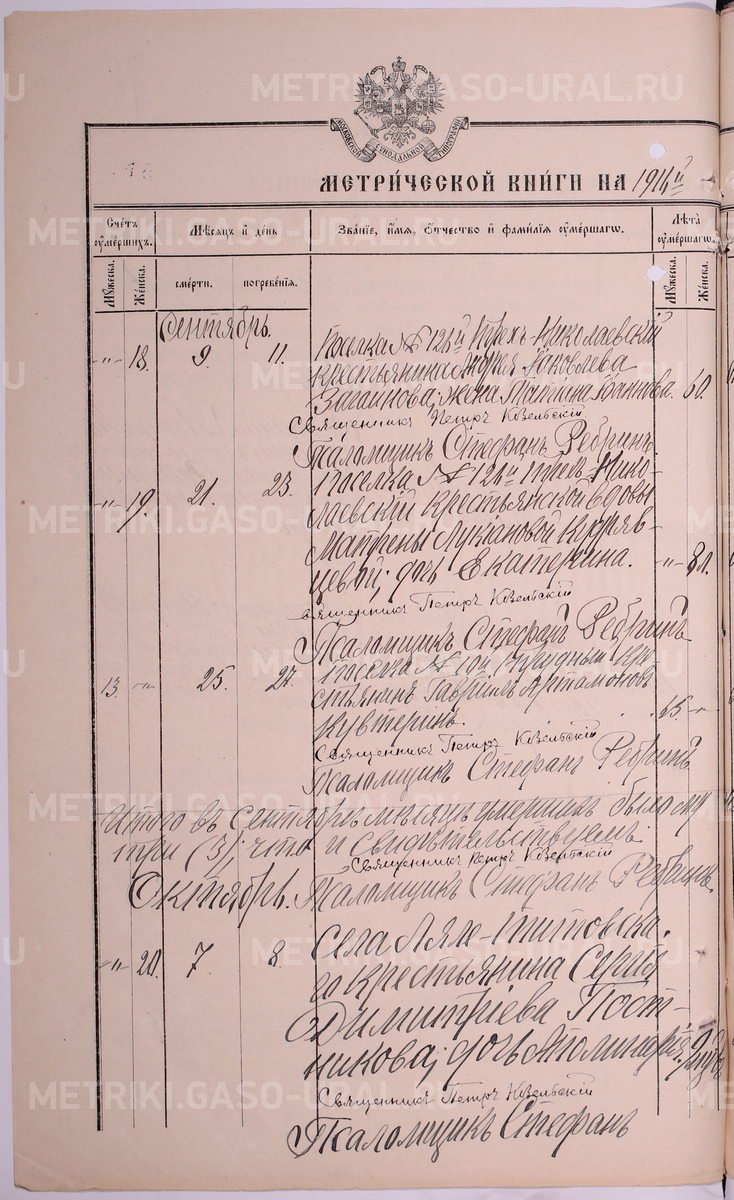 METRIKI.GASO-URAL.RU
МОСКОВСКОЙ СѴНОДАЛЬНОЙ ТИПОГРАФІИ
МЕТРИЧЕСКОЙ КНИГИ НА 1914й
Счетъ умершихъ.
Мѣсяцъ и день
Званіе, имя, отчество и фамилія умершаго.
Лѣта умершаго.
Мужеска.
Женска.
смерти.
погребенія.
Мужеска.
Женска.
Сентябрь.
"
18.
9.
11.
Поселка № 121й Трехъ-Николаевскій
крестьянина Андрея Яковлева
Загаинова, жена Татіана Іоаннова.
60.
Священникъ Петръ Козельскій
Псаломщикъ Стефанъ Ребринъ
"
19.
21.
23.
Поселка № 121й Трехъ Нико-
лаевскій крестьянской вдовы
Матрены Лукановой Кудряв-
цевой, дочь Екатерина.
"
8 л.
Священникъ Петръ Козельскій
Псаломщикъ Стефанъ Ребринъ
13.
"
25.
27.
Поселка № 10й Прудный кре-
стьянинъ Гавріилъ Артамоновъ
Кувтеринъ.
65.
"
Священникъ Петръ Козельскій
Псаломщикъ Стефанъ Ребринъ
Итого въ сентябрѣ мѣсяцѣ умершихъ было
три (3), что и свидѣтельствуемъ
Священникъ Петръ Козельскій
Октябрь.
Псаломщикъ Стефанъ Ребринъ.
"
20.
7
8.
Села Ляле-Титовска-
го крестьянина Сергія
Димитріева Пост-
никова, дочь Аполинарія.
Священникъ Петръ Козельскій
Псаломщикъ Стефанъ